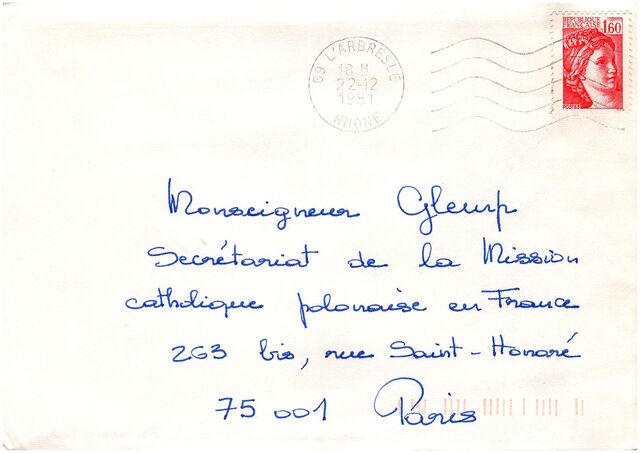 RÉPUBLIQUE
FRANÇAISE 1,60
POSTES
69 L'ARBRESLE
18 H
22-12
1981
RHONE
Monseigneur Gleurp
Secrétariat de la Mission
catholique polonaise en France
263 bis, rue Saint-Honoré
75 001 Paris